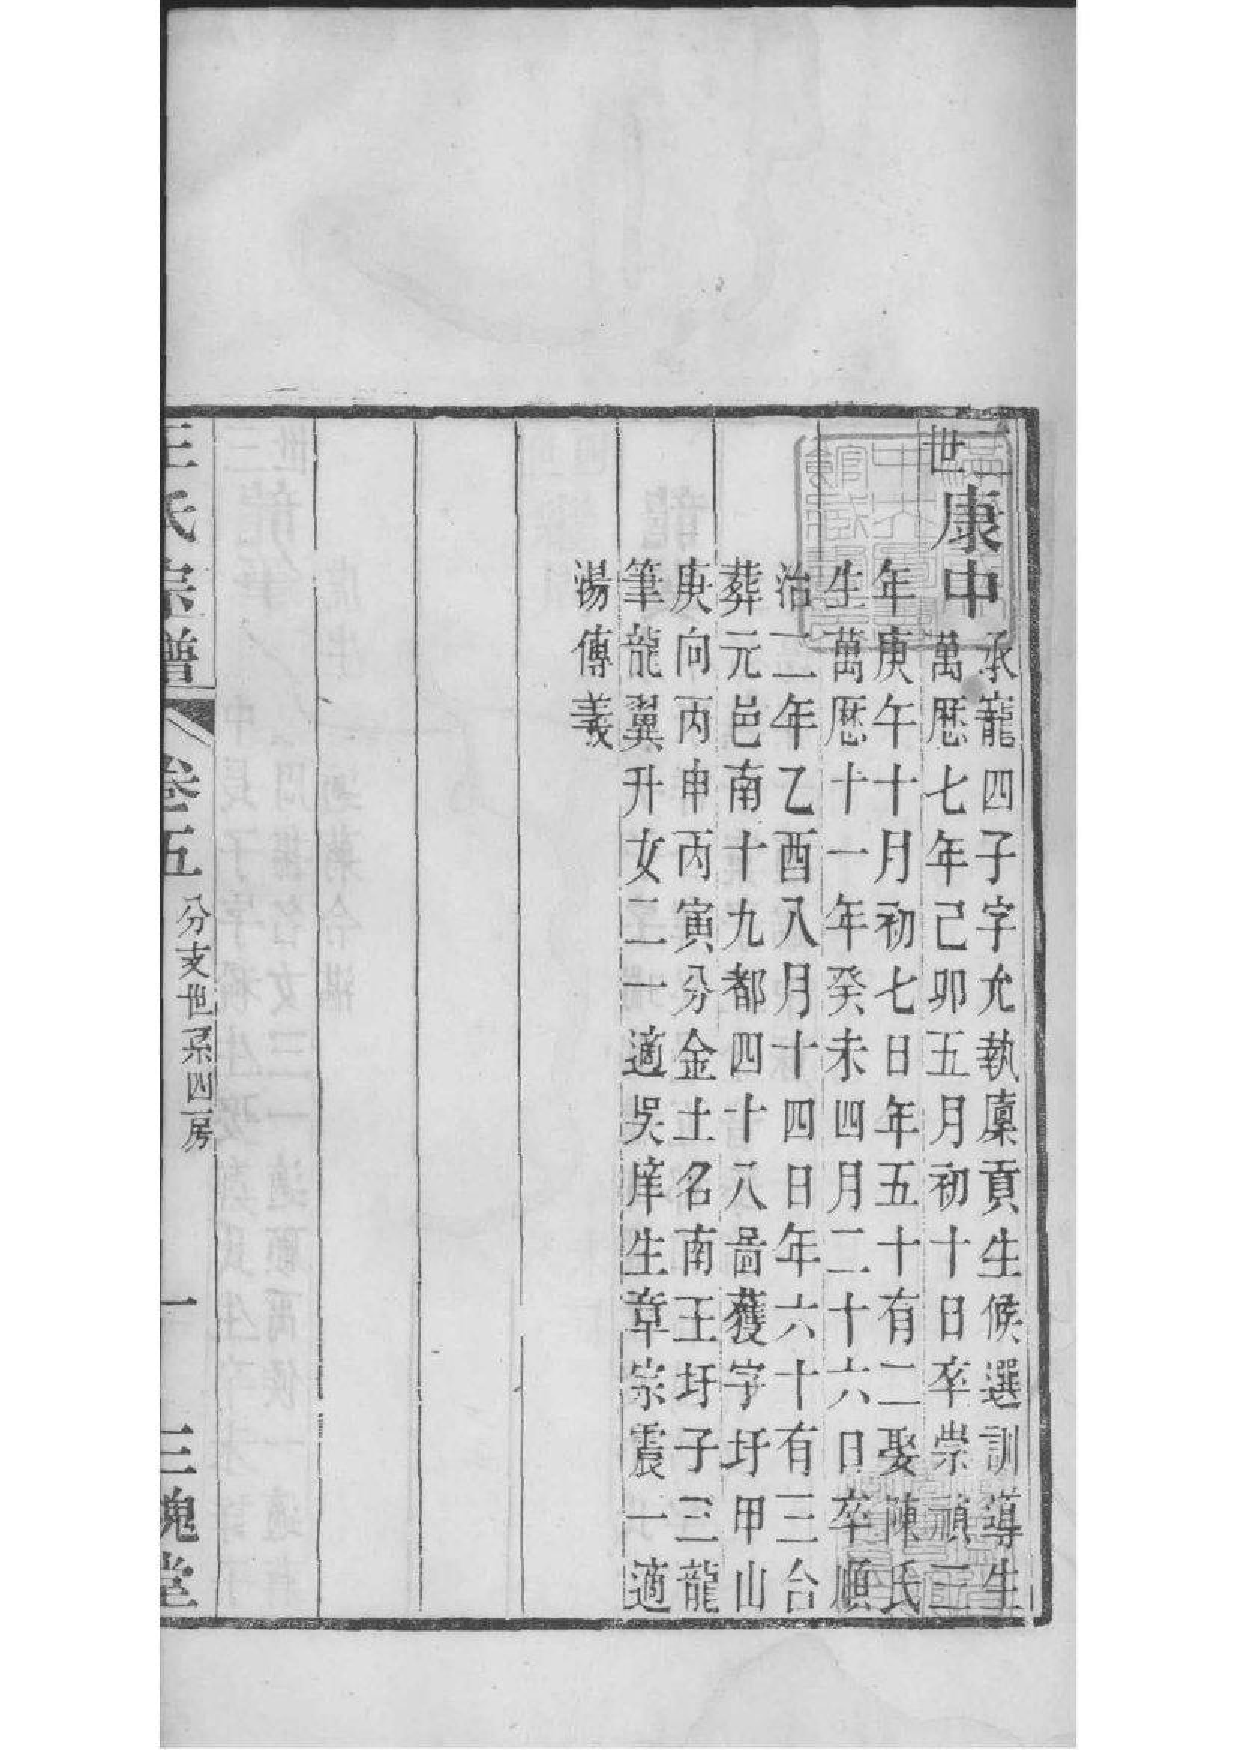 二世
康中
承寵四子字允執廩貢生候選訓導生
萬厯七年己卯五月初十日卒崇禎三
年庚午十月初七日年五十有二娶陳氏
生萬厯十一年癸未四月二十六日卒順
治二年乙酉八月十四日年六十有三合
葬元邑南十九都四十八啚蒦字圩甲山
庚向丙申丙寅分金土名南王圩子三龍
筆龍翼升女二一適吳庠生章宗震一適
湯傳義
王氏宗譜
卷五
分支世系四房
一
三槐堂